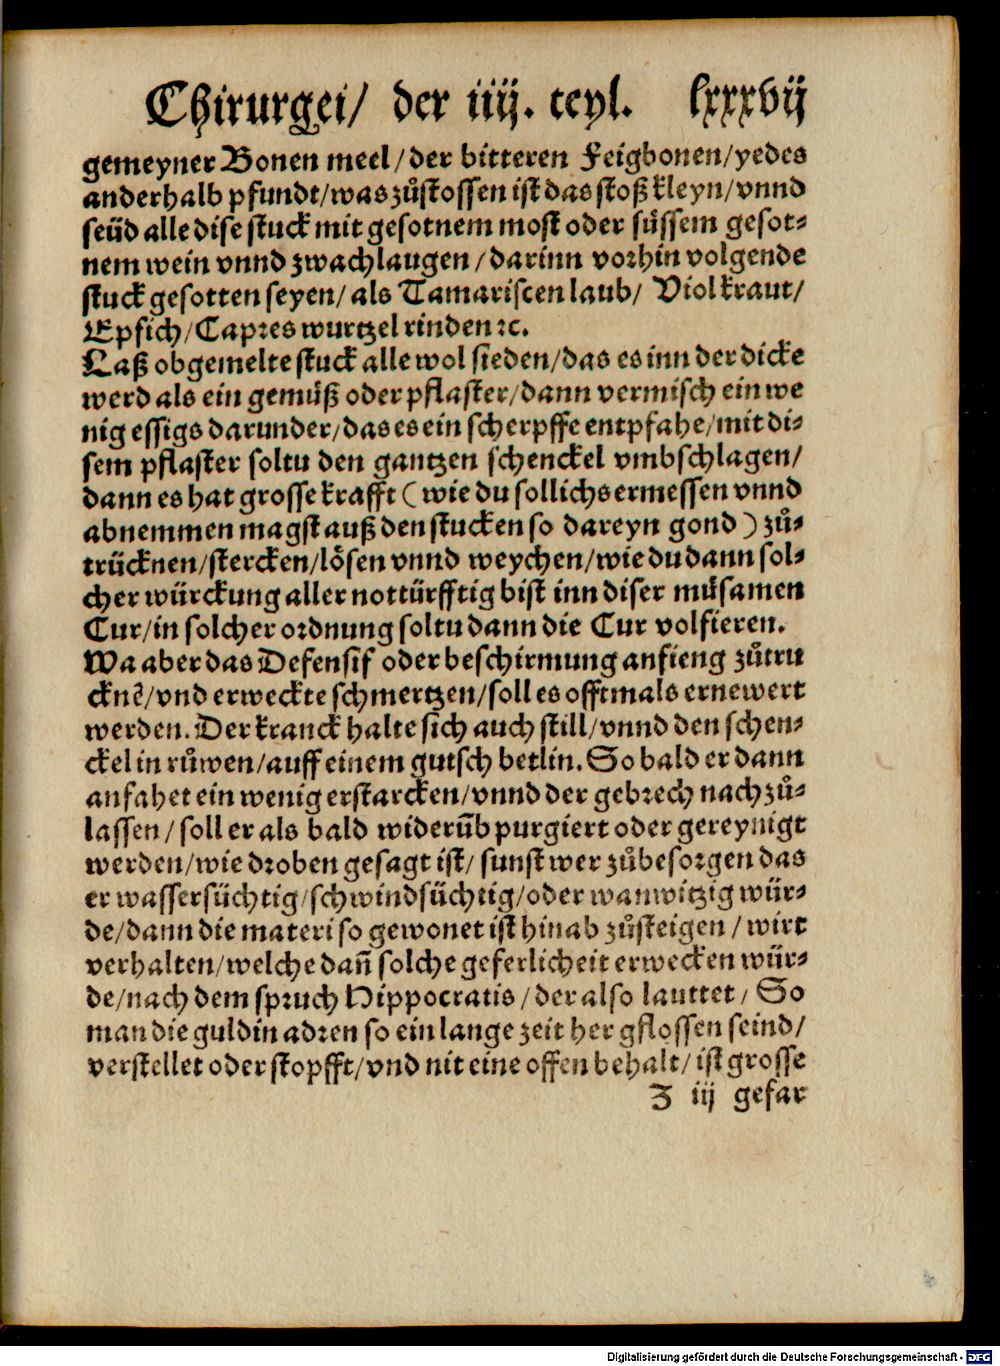 Chirurgei/ der iiij. teyl. lxxxvij
gemeyner Bonen meel/der bitteren Feigbonen/yedes
anderhalb pfundt/was zůstossen ist das stoß kleyn/vnnd
seüd alle dise stuck mit gesotnem most oder süssem gesot-
nem wein vnnd zwachlaugen/darinn vorhin volgende
stuck gesotten seyen/als Tamariscen laub/ Violkraut/
Epfich/Capres wurtzel rinden ꝛc.
Laß obgemelte stuck alle wol sieden/das es inn der dicke
werd als ein gemüß oder pflaster/dann vermisch ein we
nig essigs darunder/das es ein scherpffe entpfahe/mit di-
sem pflaster soltu den gantzen schenckel vmbschlagen/
dann es hat grosse krafft (wie du sollichs ermessen vnnd
abnemmen magst auß den stucken so dareyn gond) zů-
trücknen/stercken/lösen vnnd weychen/wie du dann sol-
cher würckung aller nottürfftig bist inn diser müsamen
Cur/in solcher ordnung soltu dann die Cur volfieren.
Wa aber das Defensif oder beschirmung anfieng zůtru
cknẽ/vnd erweckte schmertzen/soll es offtmals ernewert
werden. Der kranck halte sich auch still/vnnd den schen-
ckel in růwen/auff einem gutsch betlin. So bald er dann
anfahet ein wenig erstarcken/vnnd der gebrech nachzů-
lassen/soll er als bald widerũb purgiert oder gereynigt
werden/wie droben gesagt ist/ sunst wer zůbesorgen das
er wassersüchtig/schwindsüchtig/oder wanwitzig wür-
de/dann die materi so gewonet ist hinab zůsteigen/wirt
verhalten/welche dañ solche geferlicheit erwecken wür-
de/nach dem spruch Hippocratis/der also lauttet/ So
man die guldin adren so ein lange zeit her gflossen seind/
verstellet oder stopfft/vnd nit eine offen behalt/ist grosse
Z iij gefar
Digitalisierung gefördert durch die Deutsche Forschungsgemeinschaft - DFG